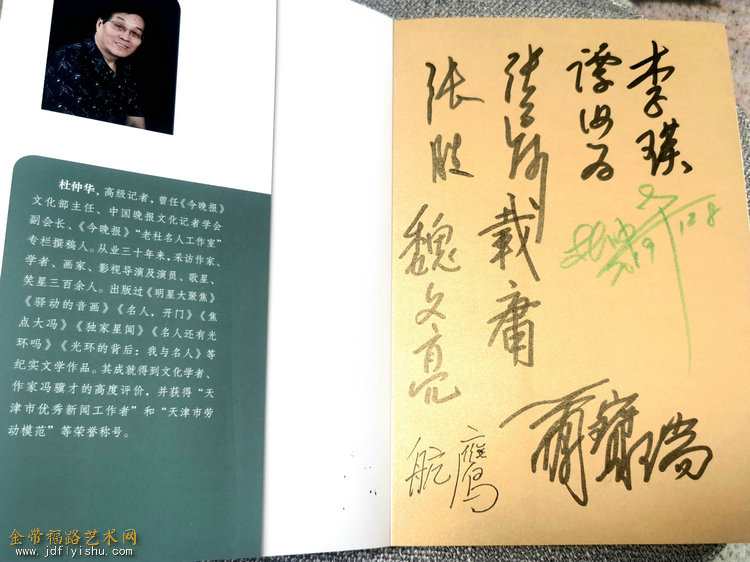 杜仲华,高级记者,曾任《今晚报》
文化部主任、中国晚报文化记者学会
副会长、《今晚报》“老杜名人工作室”
专栏撰稿人。从业三十年来,采访作家、
学者、画家、影视导演及演员、歌星、
笑星三百余人。出版过《明星大聚焦》
《驿动的音画》《名人,开门》《焦
点大冯》《独家星闻》《名人还有光
环吗》《光环的背后:我与名人》等
纪实文学作品。其成就得到文化学者、
作家冯骥才的高度评价,并获得“天
津市优秀新闻工作者”和“天津市劳
动模范”等荣誉称号。
李瑛
谭汝为
载庸
魏文亮
航鹰
金带福路艺术网
www.jdflyishu.com